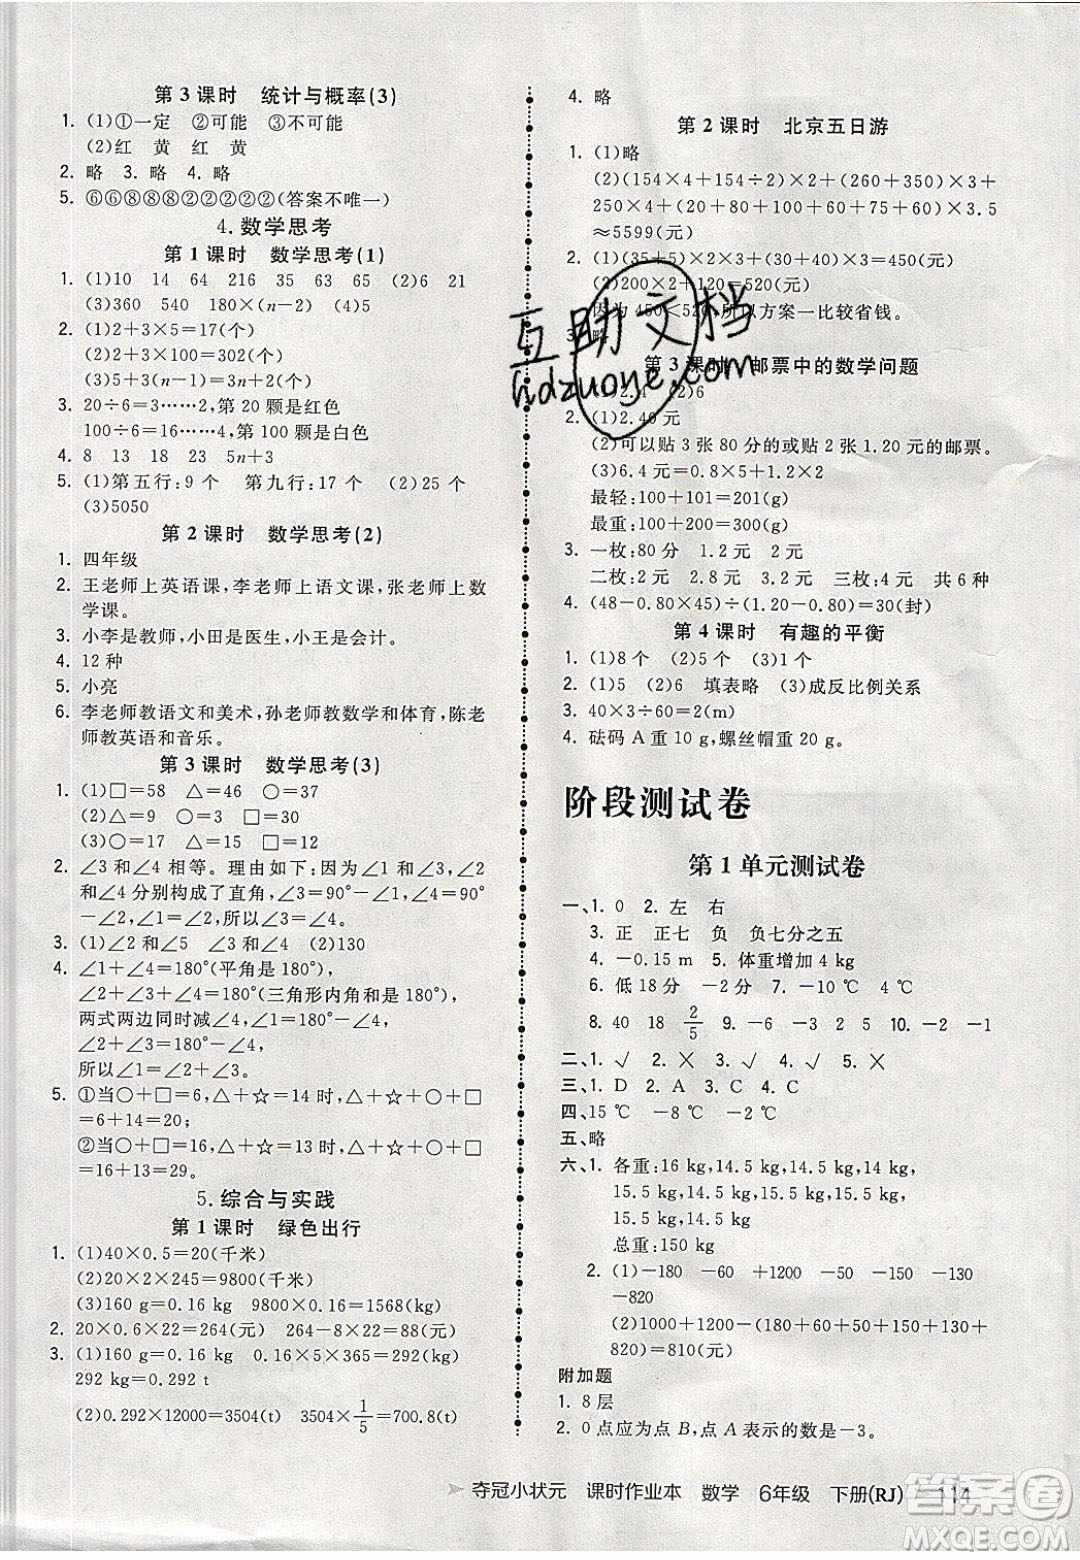 第3课时 统计与概率(3)
1. (1)①一定 ②可能 ③不可能
(2)红 黄 红 黄
2. 略 3. 略 4. 略
5. ⑥⑥⑧⑧⑧②②②②②(答案不唯一)
4. 数学思考
第1课时 数学思考(1)
1. (1)10 14 64 216 35 63 65 (2)6 21
(3)360 540 180×(n-2) (4)5
2. (1)2+3×5=17(个)
(2)2+3×100=302(个)
(3)5+3(n-1)=3n+2(个)
3. 20÷6=3……2,第20颗是红色
100÷6=16……4,第100颗是白色
4. 8 13 18 23 5n+3
5. (1)第五行:9个 第九行:17个 (2)25个
(3)5050
第2课时 数学思考(2)
1. 四年级
2. 王老师上英语课,李老师上语文课,张老师上数
学课。
3. 小李是教师,小田是医生,小王是会计。
4. 12种
5. 小亮
6. 李老师教语文和美术,孙老师教数学和体育,陈老
师教英语和音乐。
第3课时 数学思考(3)
1. (1)□=58 △=46 ○=37
(2)△=90 ○=9 □=30
(3)○=17 □=12
2. ∠3和∠4相等。理由如下:因为∠1和∠3,∠1
和∠4分别构成了平角,即∠1+∠3=180°,
∠1+∠4=180°,所以∠3=∠4。
3. (1)∠2和∠5 ∠3和∠5 (2)130
4. ∠1+∠4=180°(平角是180°),
∠2+∠3+∠4=180°(三角形内角和是180°),
两式两边同时减∠4,∠1=180°-∠4,
∠2+∠3=180°-∠4,
所以∠1=∠2+∠3。
5. ①当○+□=6,△+☆=14时,△+☆+○+□
=6+14=20;
②当○+□=16,△+☆=13时,△+☆+○+□
=16+13=29。
5. 综合与实践
第1课时 绿色出行
1. (1)40×0.5=20(千米)
(2)20×2×245=9800(千米)
(3)160 g=0.16 kg 9800×0.16=1568(kg)
2. 20×0.6×22=264(元) 264-8×22=88(元)
3. (1)160 g=0.16 kg 0.16×5×365=292(kg)
292 kg=0.292 t
(2)0.292×12000=3504(t) 3504×1/5=700.8(t)
4. 略
第2课时 北京五日游
1. (1)略
(2)(154×4+154÷2)×2+(260+350)×3+
250×4+(15+20+60+10+60+75+60)×3.5
≈5599(元)
2. (1)(35+5)×2×3+70×3=450(元)
(2)200×2+120=520(元)
因为450<520,所以方案一比较省钱。
3. 略
第3课时 邮票中的数学问题
(2)6
2. (1)2.40元
(2)可以贴3张80分的或贴2张1.20元的邮票。
(3)6.4元=0.8×5+1.2×2
最轻:100+101=201(g)
最重:100+200=300(g)
3. 一枚:80分 1.2元 2元
二枚:2元 2.8元 3.2元 三枚:4元 共6种
4. (48-0.80×45)÷(1.20-0.80)=30(封)
第4课时 有趣的平衡
1. (1)8个 (2)5个 (3)1个
2. (1)5 (2)6 填表略 (3)成反比例关系
3. 40×3÷60=2(m)
4. 砝码A重10 g,螺丝帽重20 g。
阶段测试卷
第1单元测试卷
一、1. 0 2. 左 右
3. 正 正七 负 负七分之五
4. -0.15 m 5. 体重增加4 kg
6. 低18分 -2分 7. -10℃ -5℃
8. 40 18 2/5 9. -6 -3 2 5 10. -2 -1
二、1. √ 2. ✕ 3. √ 4. √ 5. ✕
三、1. D 2. A 3. C 4. B
四、15℃ -8℃ -2℃ 4℃
五、略
六、1. 各重:16 kg,14.5 kg,14.5 kg,
15.5 kg,14.5 kg,15.5 kg,
15.5 kg,14.5 kg,
总重:150 kg
2. (1)-150 -180 -150 -130
-120 -90
(2)1050+1020+1050+1070+(1080+
820)=810(元)
附加题
1. 8层
2. 0点应为点B,点A表示的数是-3。
夺冠小状元 课时作业本 数学 6年级 下册(RJ) 114
互助文档
hdzuoye.com
答案圈
MXQE.COM